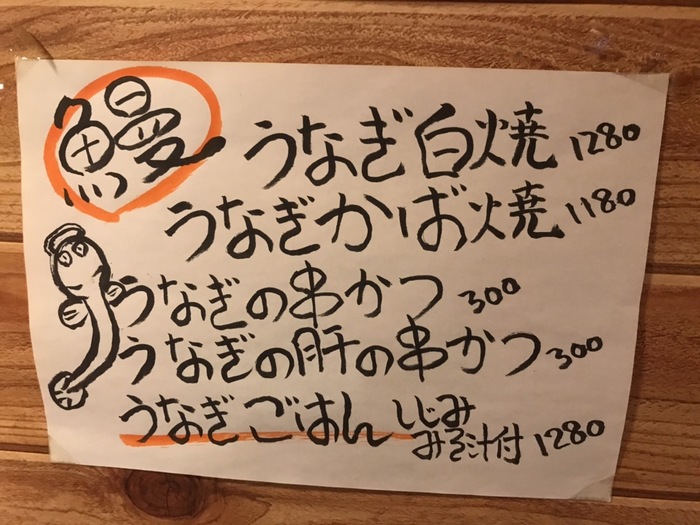 鰻
うなぎ白焼 1280
うなぎかば焼 1180
うなぎの串かつ 300
うなぎの肝の串かつ 300
うなぎごはん しじみ
みそ汁付 1280